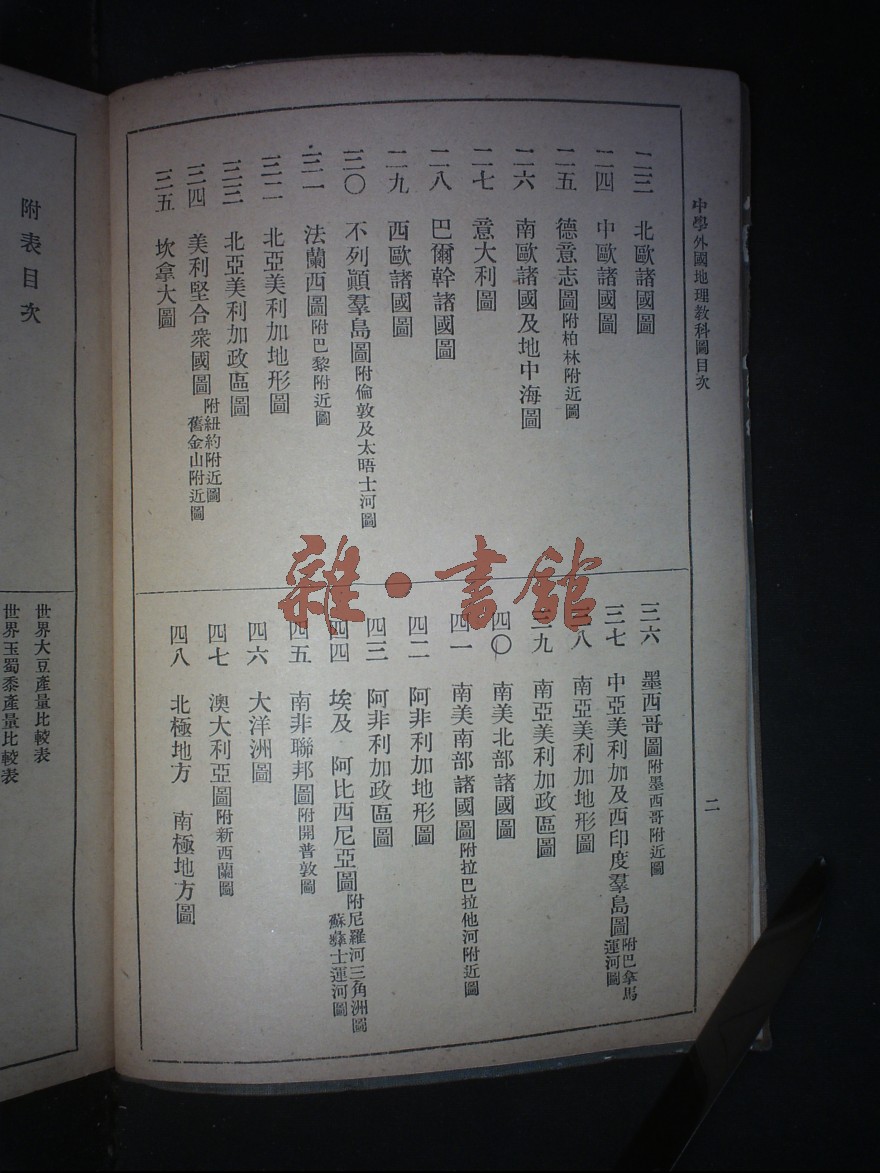 中學外國地理敎科圖目次
二
二三 北歐諸國圖
二四 中歐諸國圖
二五 德意志圖附柏林附近圖
二六 南歐諸國及地中海圖
二七 意大利圖
二八 巴爾幹諸國圖
二九 西歐諸國圖
三〇 不列顚羣島圖附倫敦及太晤士河圖
三一 法蘭西圖附巴黎附近圖
三二 北亞美利加地形圖
三三 北亞美利加政區圖
三四 美利堅合衆國圖附紐約附近圖
舊金山附近圖
三五 坎拿大圖
三六 墨西哥圖附墨西哥附近圖
三七 中亞美利加及西印度羣島圖附巴拿馬
運河圖
三八 南亞美利加地形圖
三九 南亞美利加政區圖
四〇 南美北部諸國圖
四一 南美南部諸國圖附拉巴拉他河附近圖
四二 阿非利加地形圖
四三 阿非利加政區圖
四四 埃及 阿比西尼亞圖附尼羅河三角洲圖
蘇彝士運河圖
四五 南非聯邦圖附開普敦圖
四六 大洋洲圖
四七 澳大利亞圖附新西蘭圖
四八 北極地方 南極地方圖
雜·書館
附表目次
世界大豆產量比較表
世界玉蜀黍產量比較表